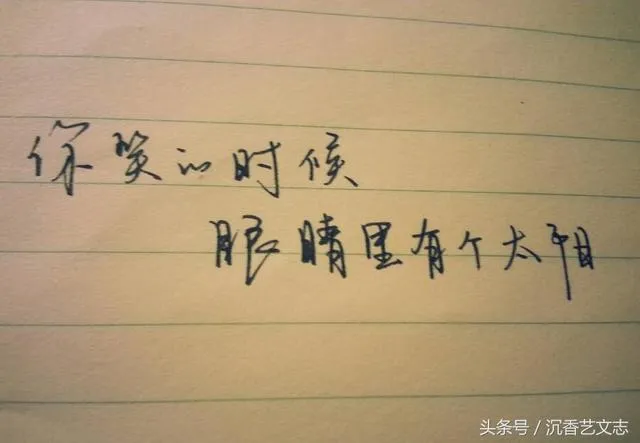 你笑的时候
眼睛里有个太阳
头条号／沉香艺文志